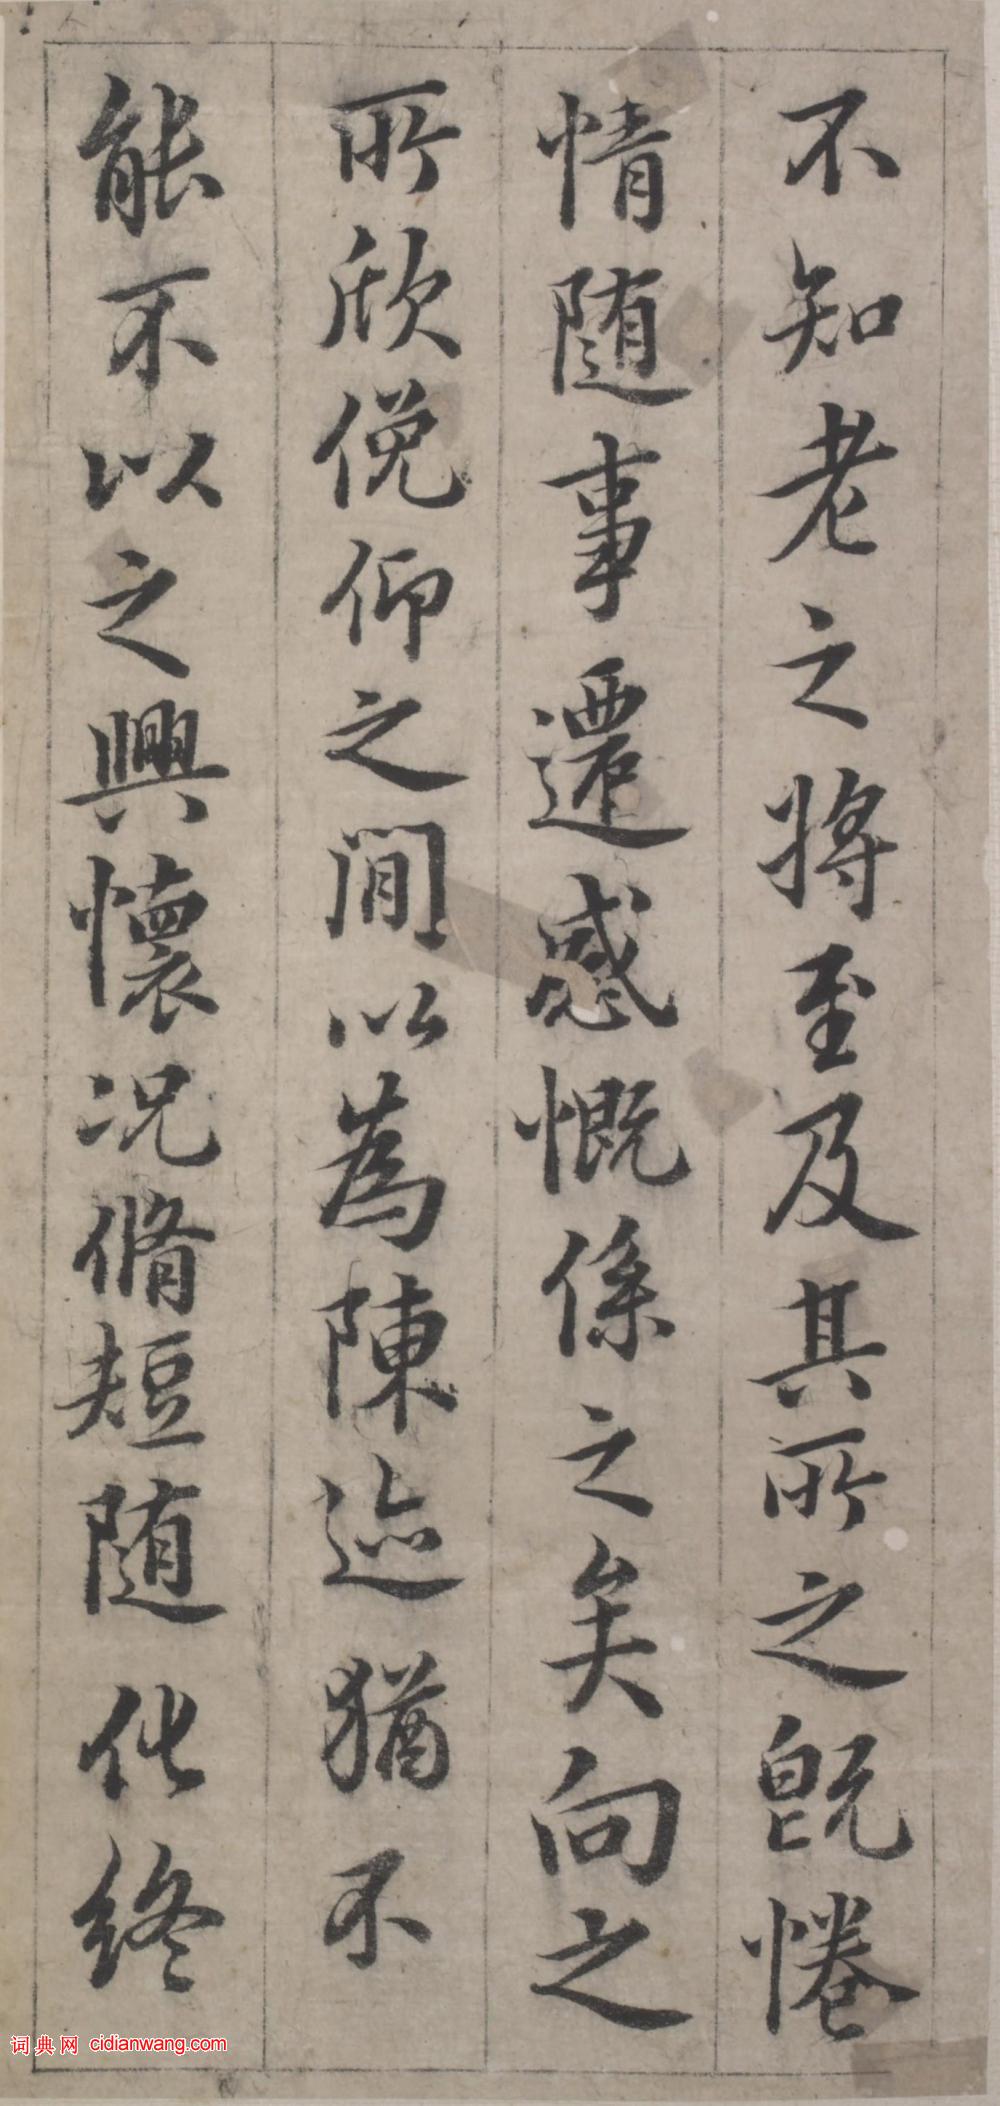 不知老之將至及其所之既惓
情随事遷感慨係之矣向之
所欣俛仰之間以為陳迹猶不
能不以之興懷况脩短随化終
词典网 cidianwang.com